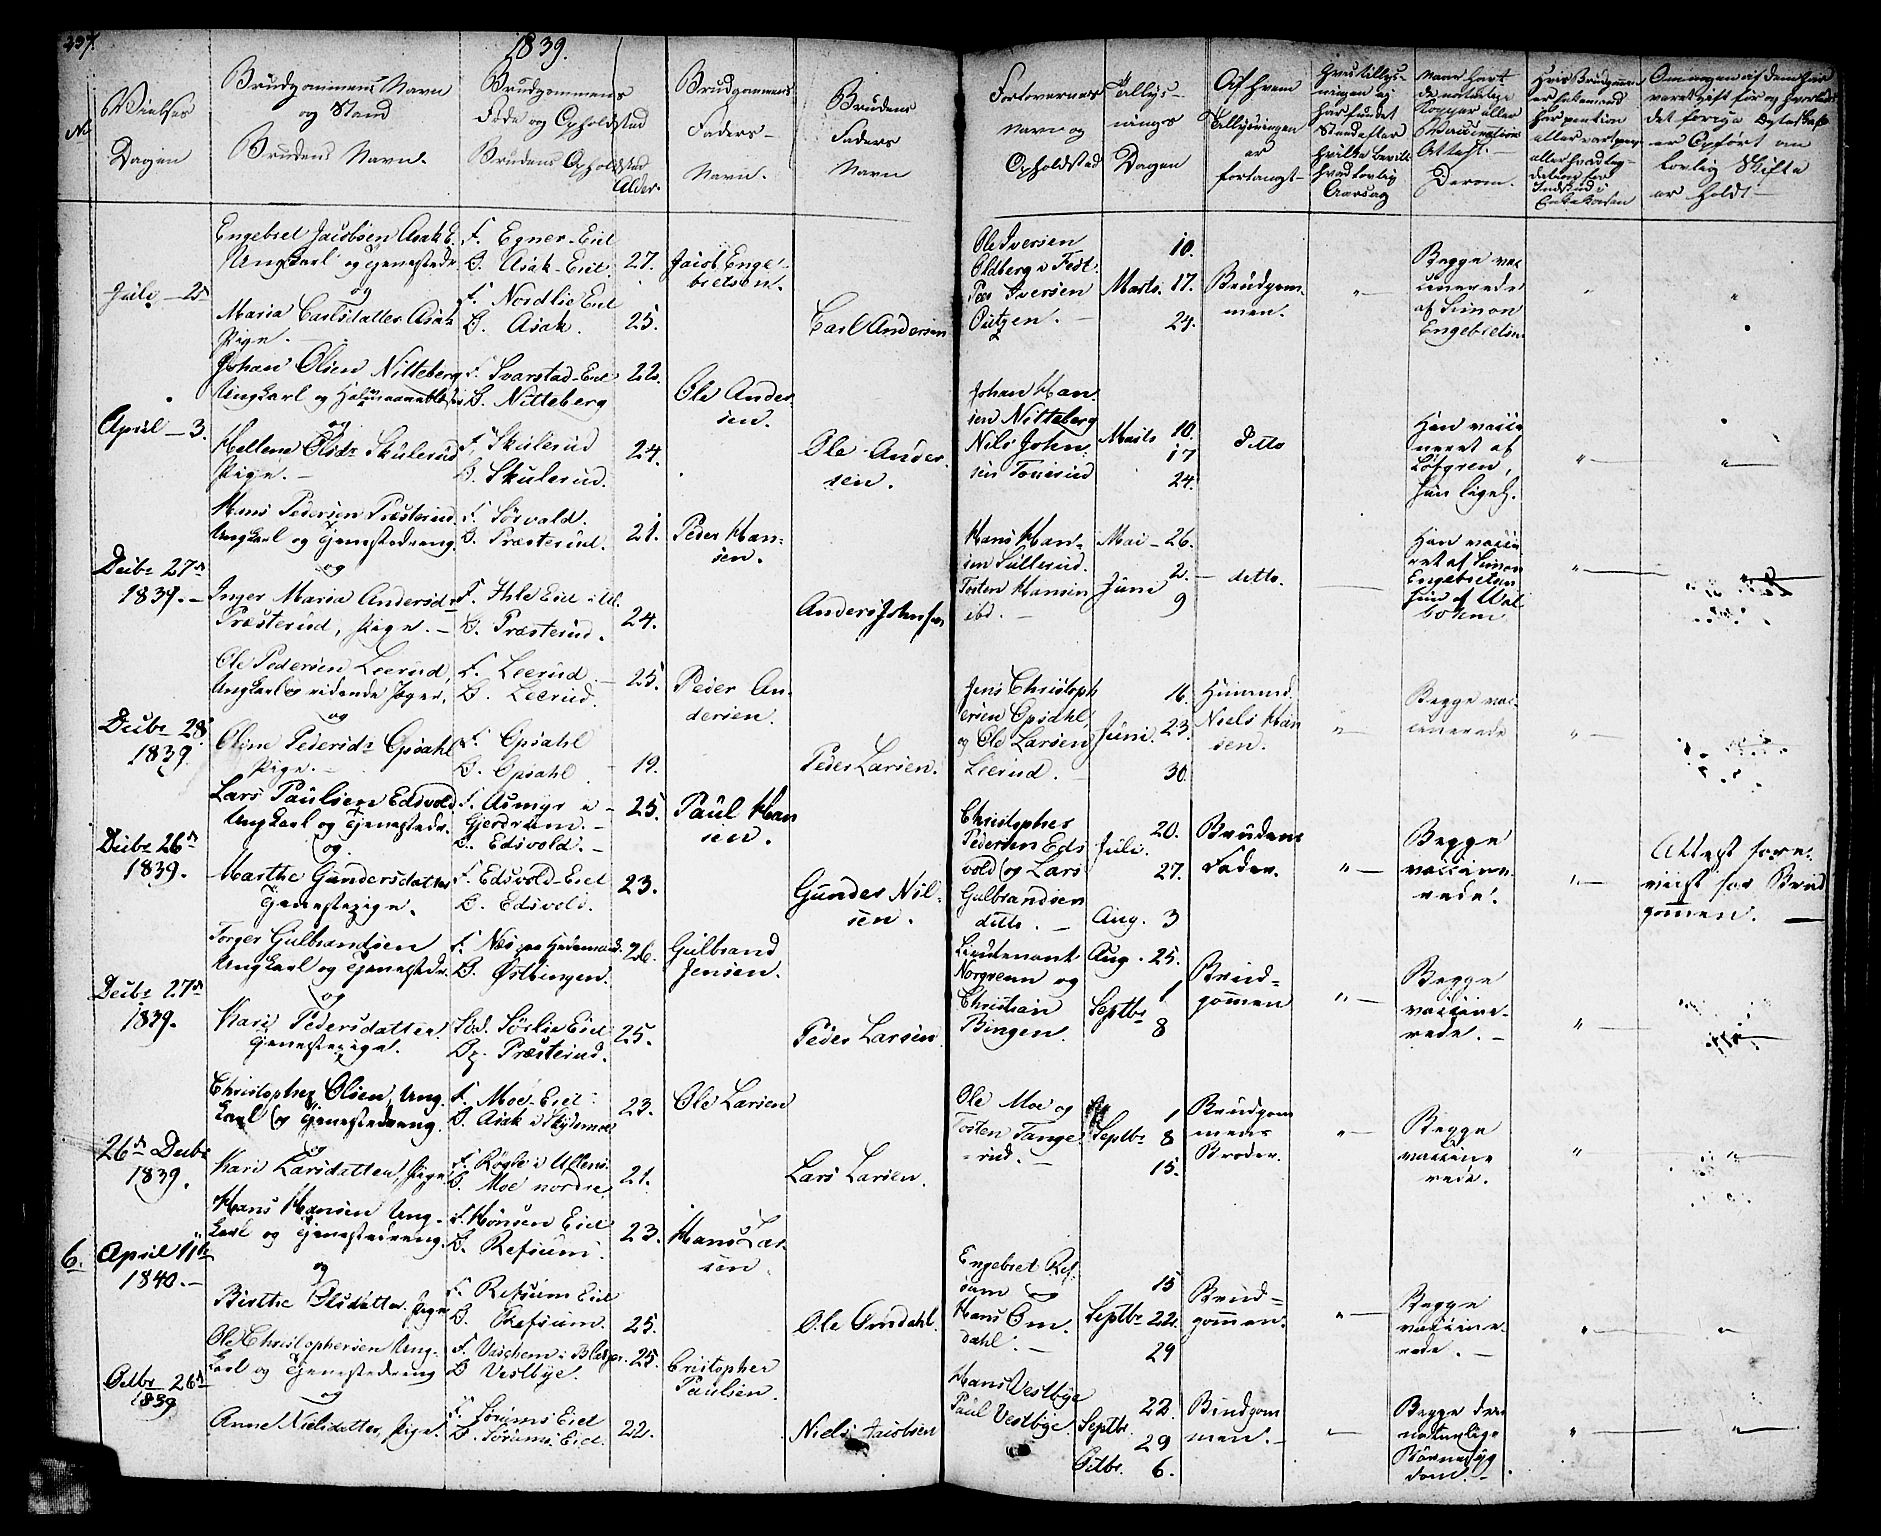 237.
1839.
No
Vielses
Dagen
Brudgommens Navn
og Stand
Brudens Navn.
Brudgommens
Føde og Opholdsted
Brudens Opholdsted
Alder.
Brudgommens
Faders
Navn.
Brudens
Faders
Navn
Forlovernes
Navn og
Opholdsted
Tillys-
nings
Dagen
Af hvem
Tillysningen
er
forlangt
Om nogen af dem har
været gift før og hvorledes
er Opført om
lovlig Skifte
er holdt
Juli 25
Engebret Jacobsen Asak E.
Ungkarl og Tjenestedr.
og
Maria Carlsdatter Asak
Pige.
F. Egner-Eid
B. Asak-Eid
F. Nordlie Eid
B. Asak.
27.
25.
Jacob Enge-
bretsen.
Carl Andersen
Ole Iversen
Oldberg i Fedt.
Peer Iversen
Marts. 10.
17.
24.
Brudgom-
men.
Begge vac-
cinerede
af Simon
Engebretsen
April 3.
Johan Olsen Nitteberg
Ungkarl og
og
Hellene Olsdr Skulerud
Pige.
F. Svarstad-Eid
B. Nitteberg
F. Skulerud
B. Skulerud.
22.
24.
Ole Ander-
sen.
Ole Ander-
sen.
Johan Han-
sen Nitteberg
Nils John-
sen
Marts 10.
17
24.
Ditto
Han vacci-
neret af
Löfgren,
hun ligel.
Decbr 27de
1839.
Hans Pedersen Præsterud
Ungkarl og Tjenestedreng.
og
Inger Maria Andersdr
Præsterud, Pige.
F. Sörvald.
B. Præsterud.
F. Ihle Eid
B. Præsterud.
21.
24.
Peder Han-
sen.
Anders Johnsen
Hans Han-
sen Sullerud.
Tosten Hansen
ibd.
Mai 26.
Juni 2.
9
ditto.
Han vacci-
ret af Simon
Engebretsen
hun af
Decbr 28
1839.
Ole Pedersen Leerud,
Ungkarl og ridende Jæger.
og
Oline Pedersdr Opsahl
Pige.
F. Leerud.
B. Leerud.
F. Opsahl
B. Opsahl
25.
19.
Peder An-
dersen.
Peder Larsen.
Jens Christoph-
ersen Opsahl,
og Ole Larsen
Leerud.
Juni. 16.
23.
30.
Niels Han-
sen.
Begge vac-
cinerede
Decbr 26de
1839.
Lars Paulsen Edsvold
Ungkarl og Tjenestedr.
og
Marthe Gundersdatter
Tjenestepige.
F. Asmyr i
Gjerdrum.
B. Edsvold.
F. Edsvold-Eid
B. Edsvold.
25.
23.
Paul Han-
sen.
Gunder Nil-
sen.
Christopher
Pedersen Eds-
vold og Lars
Gulbrandsen
ditto.
Juli. 20.
27.
Aug. 3
Brudens
Fader.
Begge
vaccine-
rede.
Attest fore-
viist for Brud
gommen.
Decbr 27de
1839.
Torger Gulbrandsen
Ungkarl og Tjenestedr.
og
Kari Pedersdatter
Tjenestepige.
F. Næs paa Hedemark.
B. Østbingen.
Fød. Sörlie Eid
B. Præsterud.
26.
25.
Gulbrand
Jensen.
Peder Larsen
Lieutenant
Norgrenn og
Christian
Bingen.
Aug. 25.
Septbr 1
8
Brud-
gommen
Begge
vaccine-
rede.
26de Decbr
1839.
Christopher Olsen, Ung-
karl og Tjenestedreng.
og
Kari Larsdatter, Pige.
F. Moe-Eid
B. Asak i Skjdsmoe
B. Moe nordre
23.
21.
Ole Larsen
Lars Larsen.
Ole Moe og
Tosten Tange-
rud.
Septbr 1
8
15.
Brudgom
mens
Broder.
Begge
vaccine
rede.
6.
April 11te
1840.
Hans Hansen Ung-
karl og Tjenestedreng.
og
Birthe Olsdatter. Pige
F. Hönsen Eid
B. Refsum.
F. Refsum Eid
B. Refsum.
23.
25.
Hans Lar-
sen.
Ole Omdahl.
Engebret Ref-
sum og
Hans Om-
dahl.
15
Septbr 22.
29
Brud-
gommen.
Begge
vaccine-
rede.
Octbr 26de
1839
Ole Christophersen Ung-
karl og Tjenestedreng
og
Anne Nielsdatter, Pige.
B. Vestbye.
F. Sörums Eid
B. Sörums Eid.
25.
22.
Cristopher
Paulsen.
Niels Jacobsen
Hans Vestbye
Paul Vestbye.
Septbr. 22.
29
Octbr. 6.
Brudgom
men.
Begge den
naturlige
Börnesyg
dom.